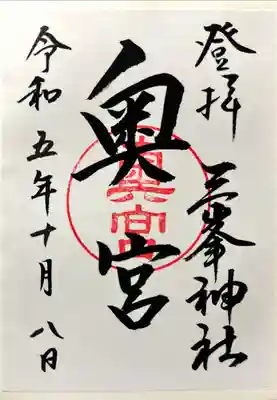 登拝 三峯神社
奥宮
令和五年十月八日